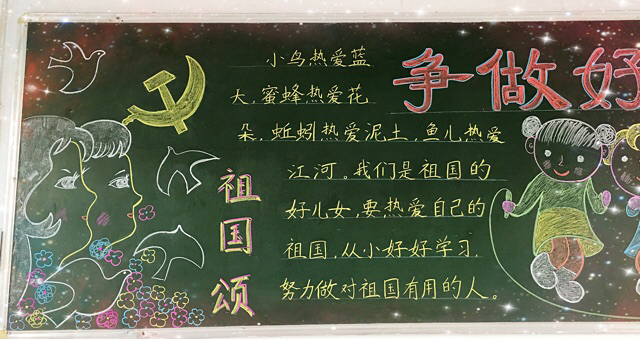 小鸟热爱蓝
大，蜜蜂热爱花
朵，蚯蚓热爱泥土，鱼儿热爱
江河。我们是祖国的
好儿女，要热爱自己的
祖国，从小好好学习，
努力做对祖国有用的人。
祖国颂
争做好